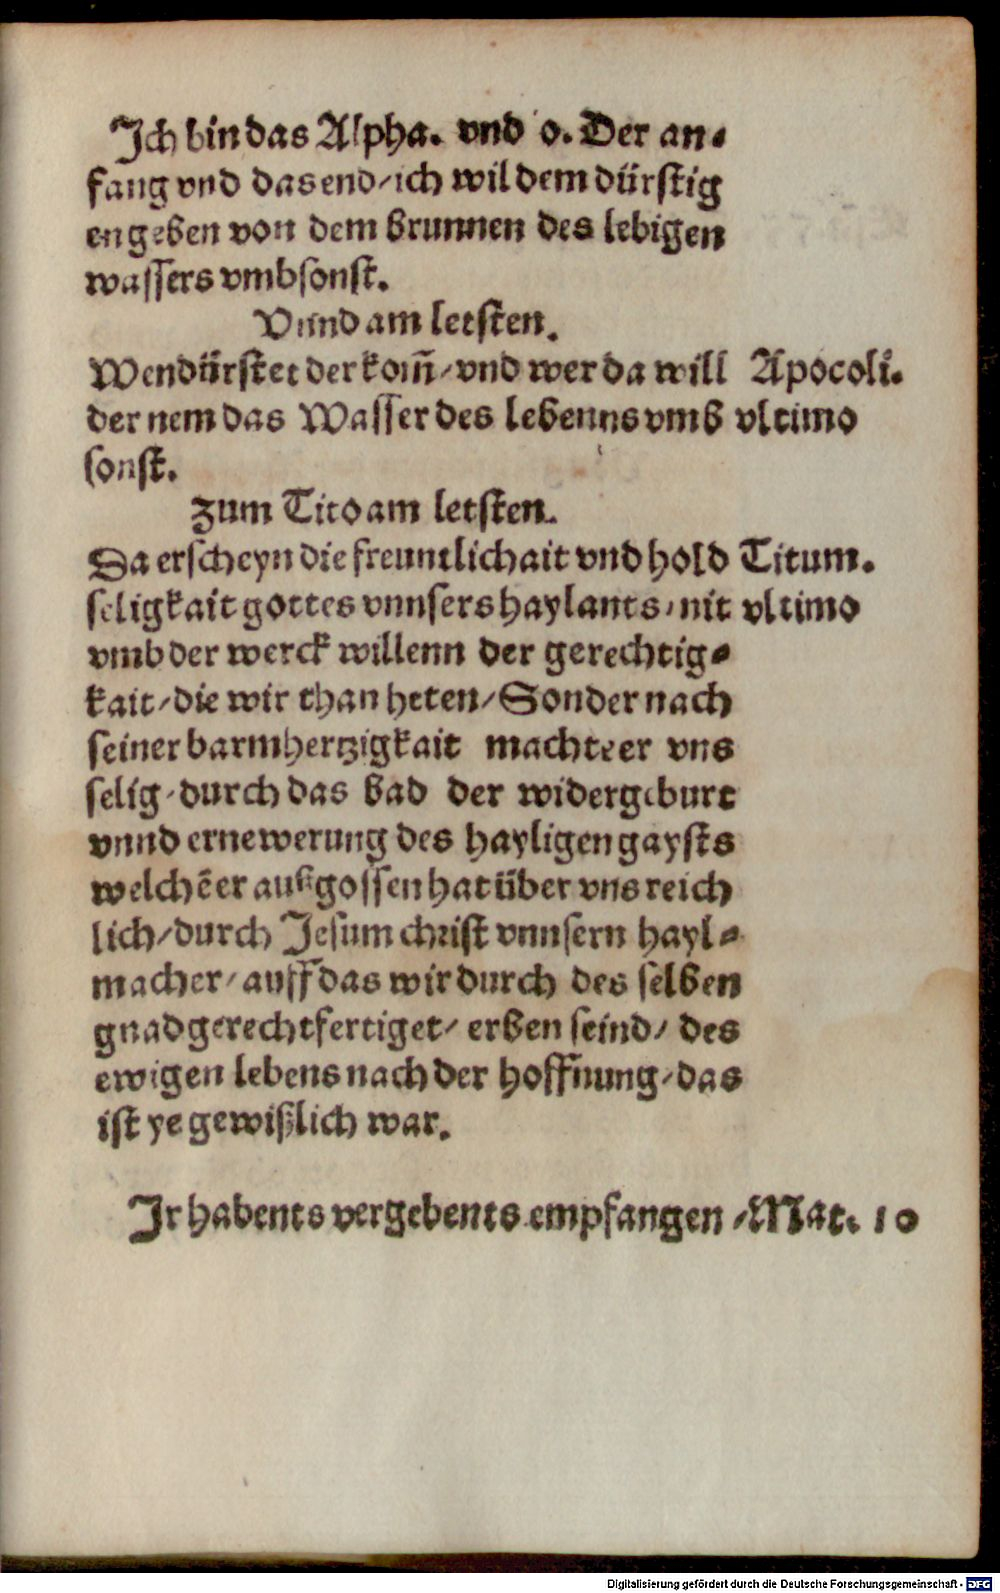 Ich bin das Alpha. vnd o. Der an-
fang vnd das end/ich wil dem dürstig
en geben von dem brunnen des lebigen
wassers vmbsonst.
Vnnd am letsten.
Wen dürstet der kom̃/vnd wer da will Apocoli.
der nem das Wasser des lebenns vmb vltimo
sonst.
zum Tito am letsten.
Da erscheyn die freuntlichait vnd hold Titum.
seligkait gottes vnnsers haylants/nit vltimo
vmb der werck willenn der gerechtig-
kait/die wir than heten/Sonder nach
seiner barmhertzigkait machte er vns
selig/durch das bad der widergeburt
vnnd ernewerung des hayligen gaysts
welchē er außgossen hat über vns reich
lich/durch Jesum christ vnnsern hayl-
macher/auff das wir durch des selben
gnad gerechtfertiget/ erben seind/ des
ewigen lebens nach der hoffnung/das
ist ye gewißlich war.
Ir habents vergebents empfangen /Mat. 10
Digitalisierung gefördert durch die Deutsche Forschungsgemeinschaft - DFG